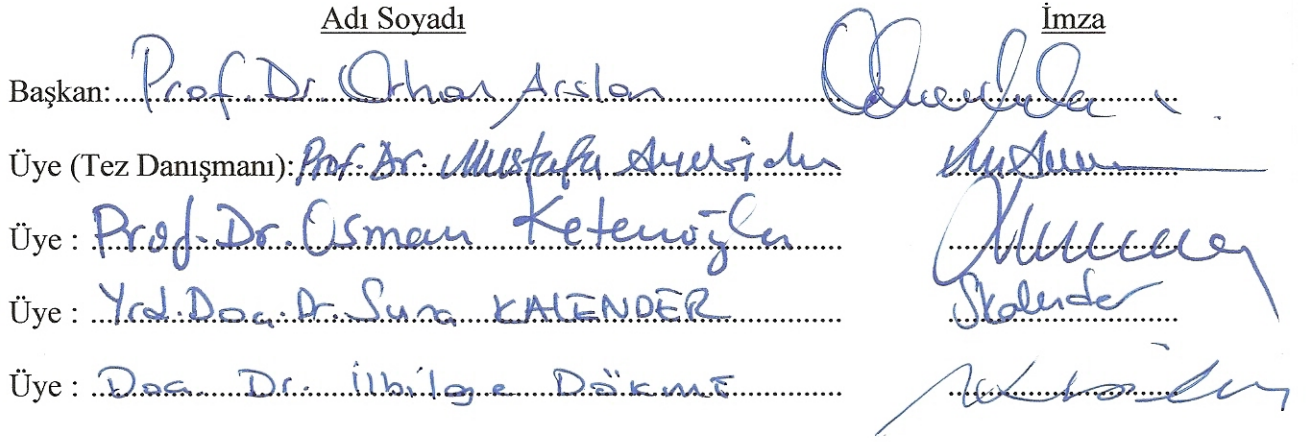 Adı Soyadı İmza
Başkan: Prof. Dr. Orhan Arslan
Üye (Tez Danışmanı): Prof. Dr. Mustafa
Üye : Prof. Dr. Osman Ketenoğlu
Üye : Yrd. Doç. Dr. Suna KALENDER SKalender
Üye : Doç. Dr. İlbilge DÖKME